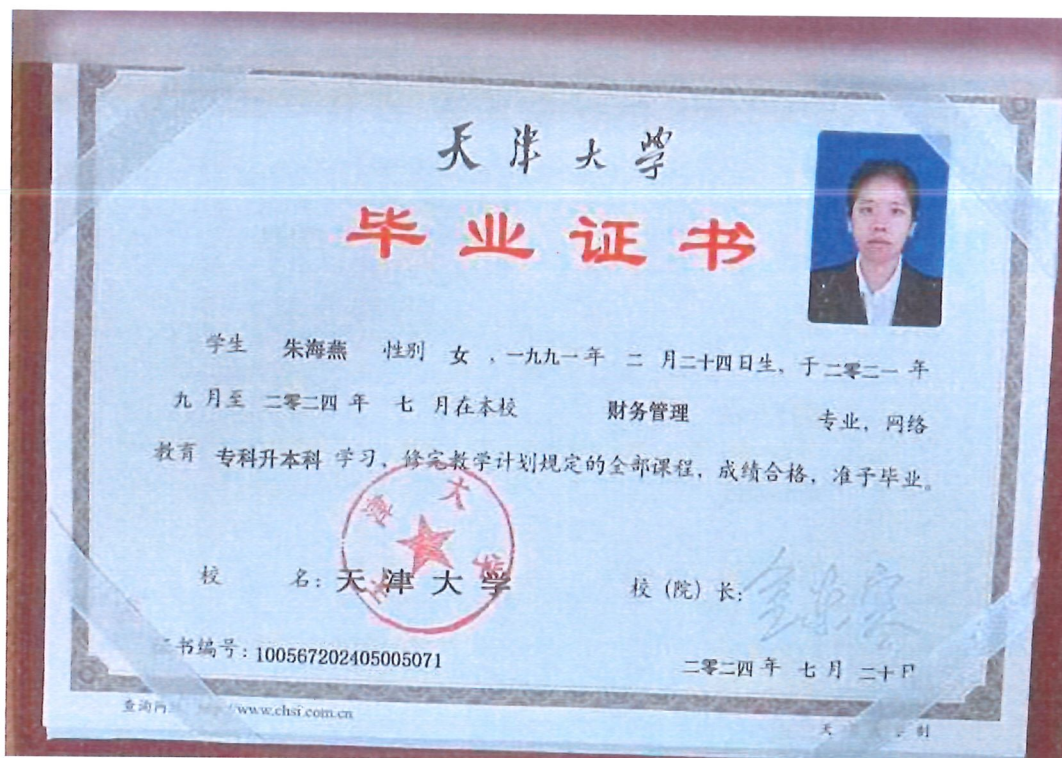 天津大学
毕业证书
学生 朱海燕 性别 女 ,一九九一年 二 月二十四日生, 于二零二一 年
九 月至 二零二四 年 七 月在本校 财务管理 专业, 网络
教育 专科升本科 学习, 修完教学计划规定的全部课程, 成绩合格, 准予毕业。
天津大学
校 名: 天津大学 校(院)长:
书编号: 100567202405005071
二零二四 年 七 月 二十日
查询网 www.chsi.com.cn
天 制